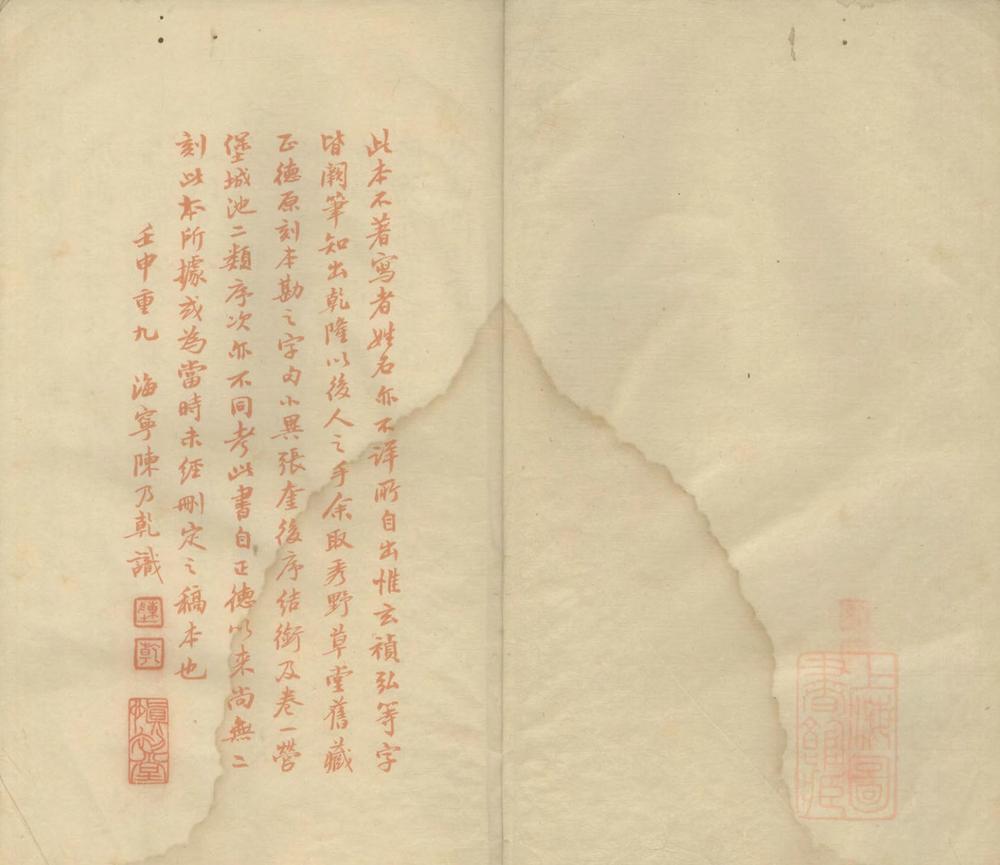 此本不著寫者姓名亦不詳所自出惟玄禎弘等字
皆闕筆知出乾隆以後人之手余取秀野草堂舊藏
正德原刻本勘之字句小異張奎後序結銜及卷一營
堡城池二類序次亦不同考此書自正德以來尚無二
刻此本所據或為當時未經刪定之稿本也
壬申重九 海寧陳乃乾識
陳
乾
慎初堂
上海圖
書館藏